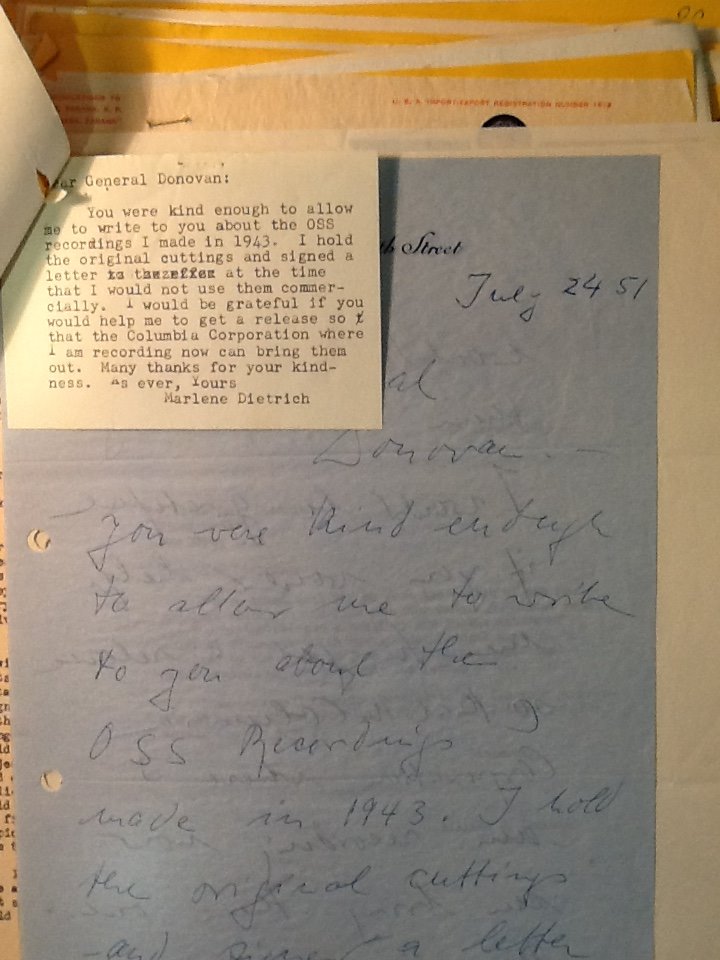 U. S. A. IMPORT/EXPORT REGISTRATION NUMBER
ear General Donovan:
You were kind enough to allow
me to write to you about the OSS
recordings I made in 1943. I hold
the original cuttings and signed a
letter at the time
that I would not use them commer-
cially. I would be grateful if you
would help me to get a release so t
that the Columbia Corporation where
I am recording now can bring them
out. Many thanks for your kind-
ness. As ever, Yours
Marlene Dietrich
th Street
July 24 51
al
Donovan. —
you were kind enough
to allow me to write
to you about the
OSS Recordings
made in 1943. I hold
the original cuttings
- and signed a letter